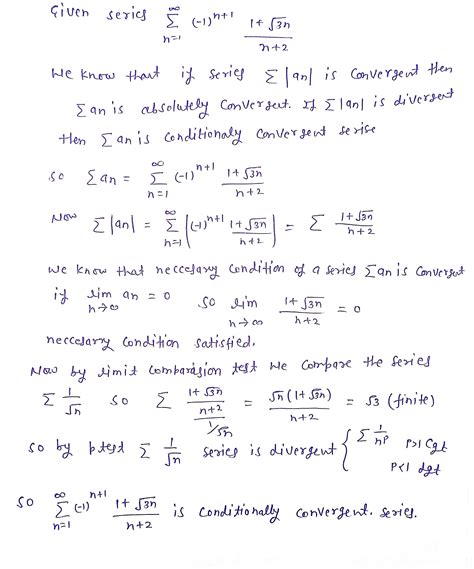 Given series ∞ Σ n=1 (-1)^n+1 1+√3n / n+2
We know that if series Σ|an| is convergent then
Σan is absolutely convergent. If Σ|an| is divergent
then Σan is conditionaly convergent serise
so Σan = ∞ Σ n=1 (-1)^n+1 1+√3n / n+2
Now Σ|an| = ∞ Σ n=1 |(-1)^n+1 1+√3n / n+2| = Σ 1+√3n / n+2
We know that neccesary condition of a series Σan is convergent
if lim n→∞ an = 0 so lim n→∞ 1+√3n / n+2 = 0
neccesarry condition satisfied.
Now by limit comparasion test we compare the series
Σ 1/√n so Σ 1+√3n / n+2 / 1/√n = √n(1+√3n) / n+2 = √3 (finite)
so by p test Σ 1/√n series is divergent { Σ 1/n^p P>1 cgt
P<1 dgt
so ∞ Σ n=1 (-1)^n+1 1+√3n / n+2 is conditionally convergent. series.